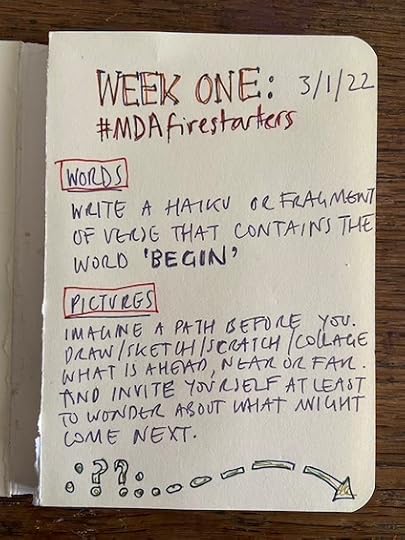 WEEK ONE: 3/1/22
#MDAfirestarters
WORDS
WRITE A HAIKU OR FRAGMENT
OF VERSE THAT CONTAINS THE
WORD 'BEGIN'
PICTURES
IMAGINE A PATH BEFORE YOU.
DRAW/SKETCH/SCRATCH/COLLAGE
WHAT IS AHEAD, NEAR OR FAR.
AND INVITE YOURSELF AT LEAST
TO WONDER ABOUT WHAT MIGHT
COME NEXT.
??